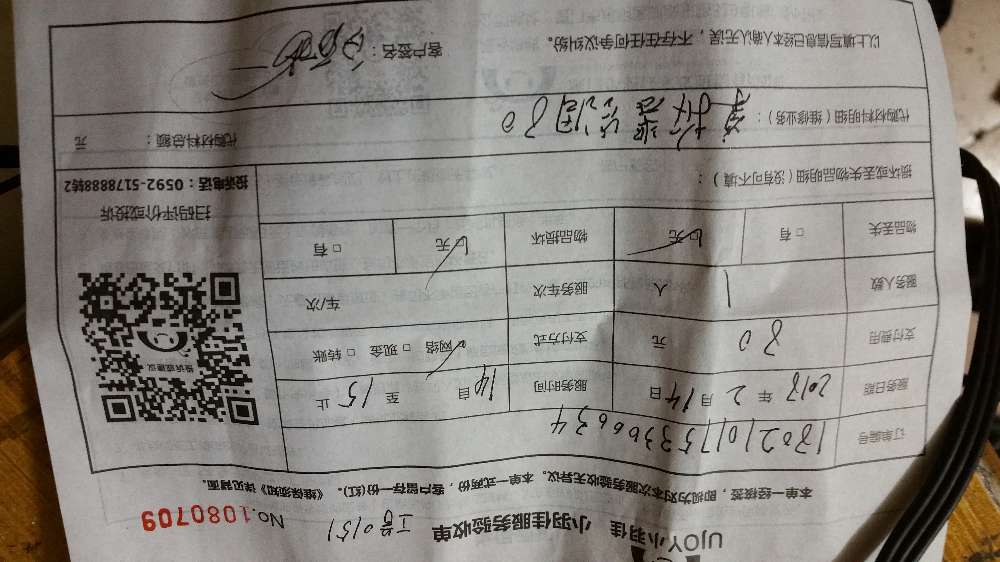 UJOY小羽佳 小羽佳服务验收单 工号0151
No.1080709
本单一经接签，即视为对本次服务验收无异议。本单一式两份，客户留存一份(红)。《维保须知》详见背面。
订单编号
服务日期 2018年2月14日 服务时间 14自 至15止
支付费用 80元 支付方式 网络 □现金 □转账
服务人数 1人 服务车次 车/次
物品丢失 □有 无 物品损坏 无 □有
损坏或丢失物品明细（没有可不填）：
代购材料明细（维修业务）： 80
代购材料总额： 元
以上填写信息已经本人确认无误，不存在任何争议纠纷。
客户签名：
投诉或建议
扫码评价或投诉
投诉电话：0592-5178888转2